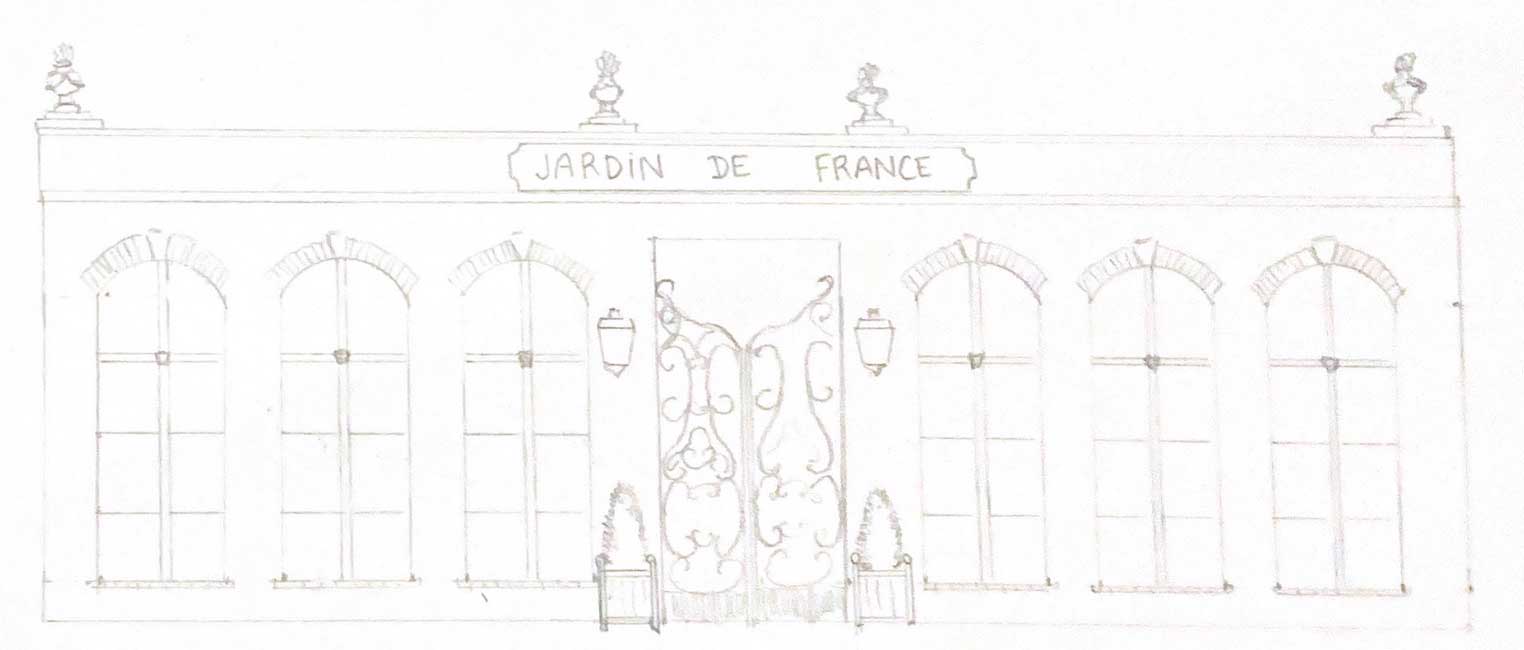 JARDiN DE FRANCE